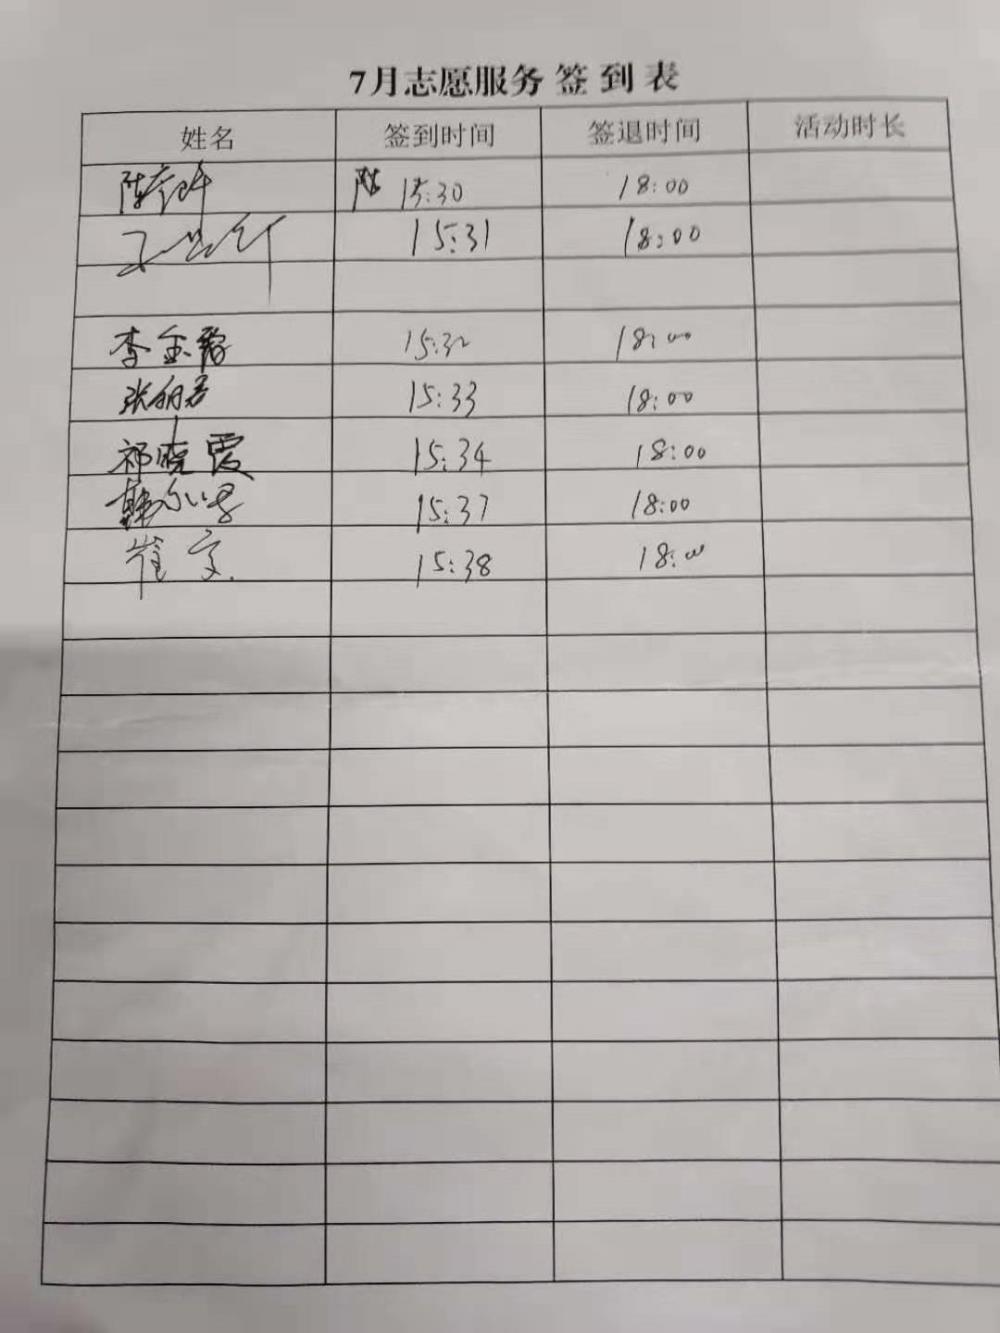 7月志愿服务签到表
姓名 签到时间 签退时间 活动时长
15:30 18:00
15:31 18:00
李金 15:32 18:00
张 15:33 18:00
祁晓霞 15:34 18:00
韩 15:37 18:00
崔文 15:38 18:00